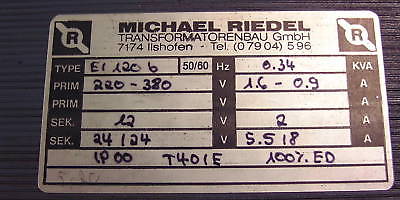 R MICHAEL RIEDEL R
TRANSFORMATORENBAU GmbH
7174 Ilshofen - Tel. (07904) 596
TYPE EI 120 b 50/60 Hz 0.34 KVA
PRIM 220-380 V 1.6-0.9 A
PRIM V A
SEK. 12 V 2 A
SEK. 24/24 V 5.5/8 A
IP00 T40/E 100% ED